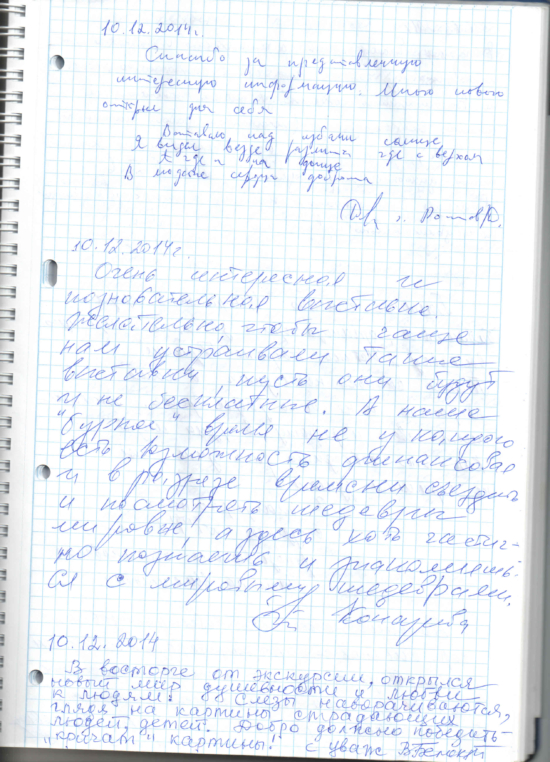 10.12.2014г.
Спасибо за представленную
интересную информацию. Много нового
открыл для себя
Вставало над избами солнце
Я видел везде где с верхом
А где и на донце
В людские сердца доброта
г. Ростов Д.
10.12.2014г.
Очень интересная и
познавательная выставка.
Желательно, чтобы чаще
нам устраивали такие
выставки, пусть они будут
и не бесплатные. В наше
"бурное" время не у каждого
есть возможность финансовая
и в разрезе времени съездить
и посмотреть шедевры
мировые, а здесь хоть частич-
но познаешь и знакомишь-
ся с мировыми шедеврами.
10.12.2014
В восторге от экскурсии, открылся
новый мир душевности и любви
к людям. Слезы наворачиваются,
глядя на картины страдающих
людей, детей. Добро должно победить -
"кричат" картины! с уваж